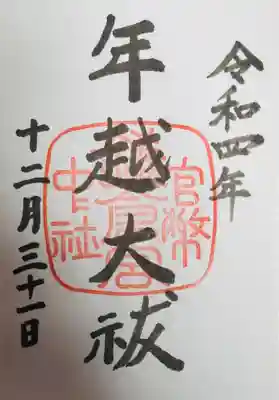 令和四年
年越大祓
十二月三十一日
官幣
鎌倉宮
中社